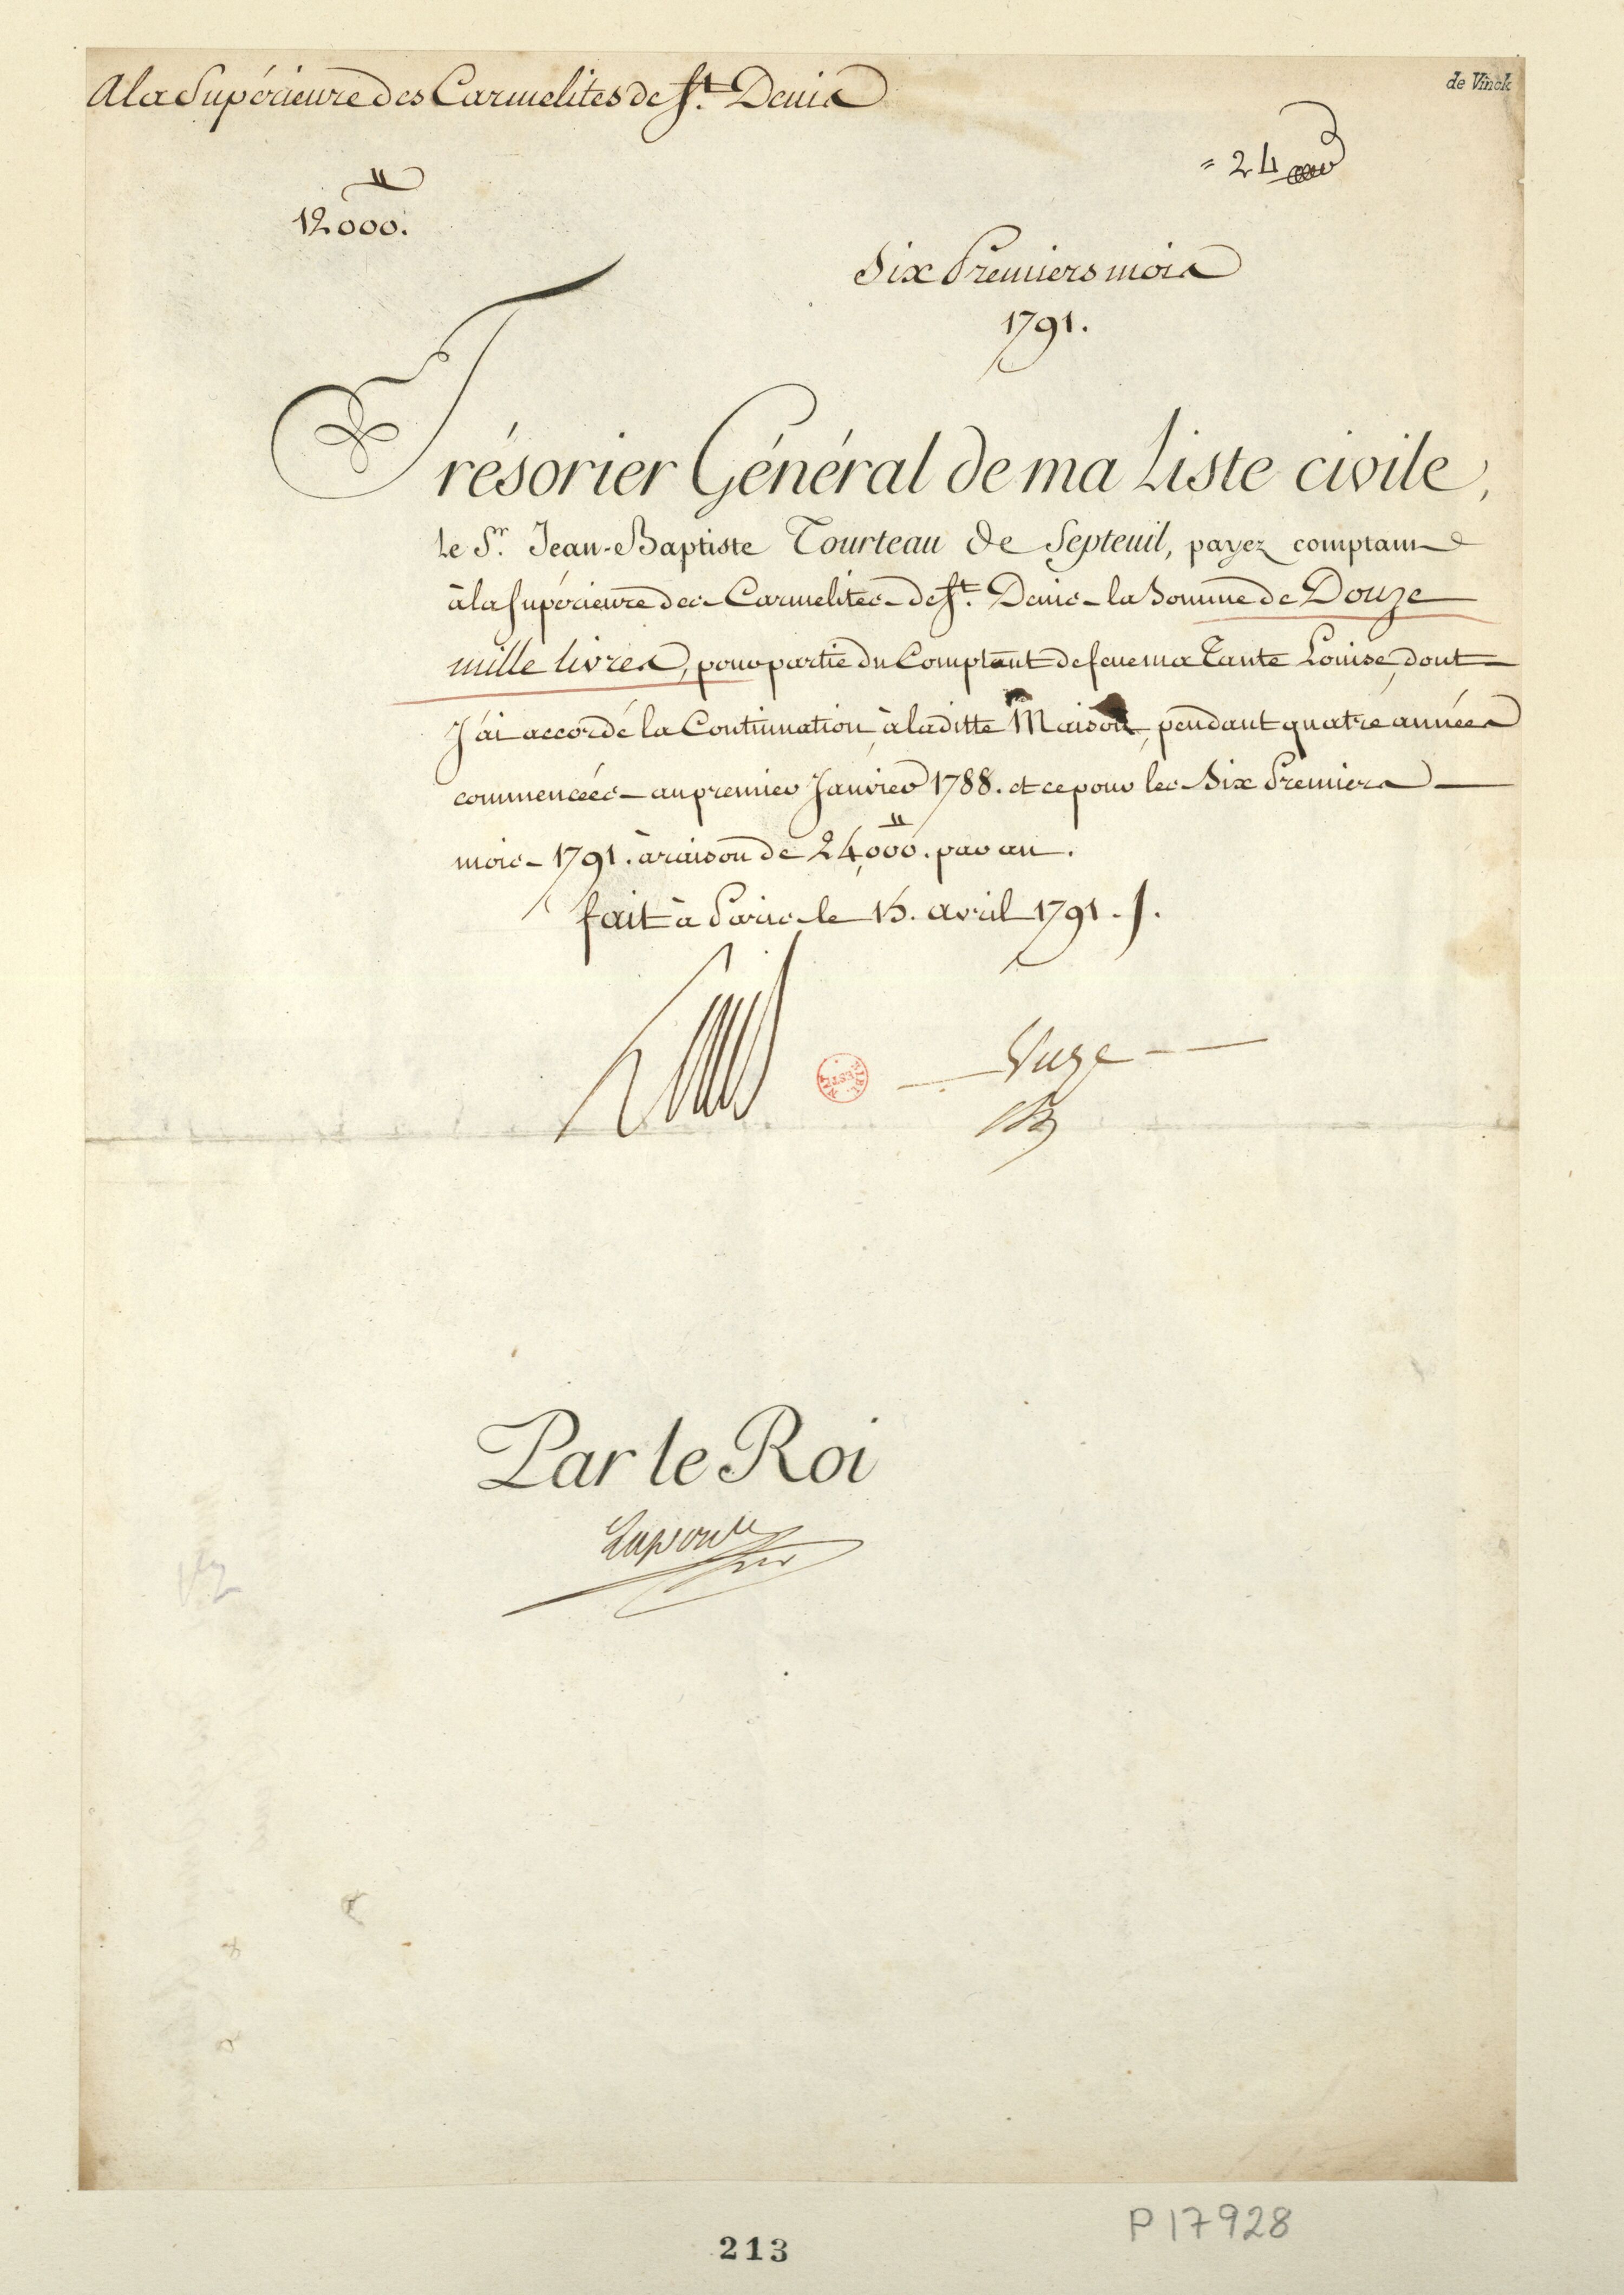 A la Supérieure des Carmelites de St. Denis
de Vinck
= 24
12000.
Six Premiers mois
1791.
Trésorier Général de ma Liste civile,
le Sr. Jean-Baptiste Tourteau de Septeuil, payez comptant
à la Supérieure des Carmelites de St. Denis la Somme de Douze
mille livres, pour partie du Comptant de feue ma Tante Louise, dont
J'ai accordé la Continuation, à la ditte Maison, pendant quatre années
commencées au premier Janvier 1788. et ce pour les Six Premiers
mois 1791. à raison de 24,000.tt par an.
fait à Paris le 15. avril 1791. /.
Louis
Par le Roi
Laporte
213
P17928